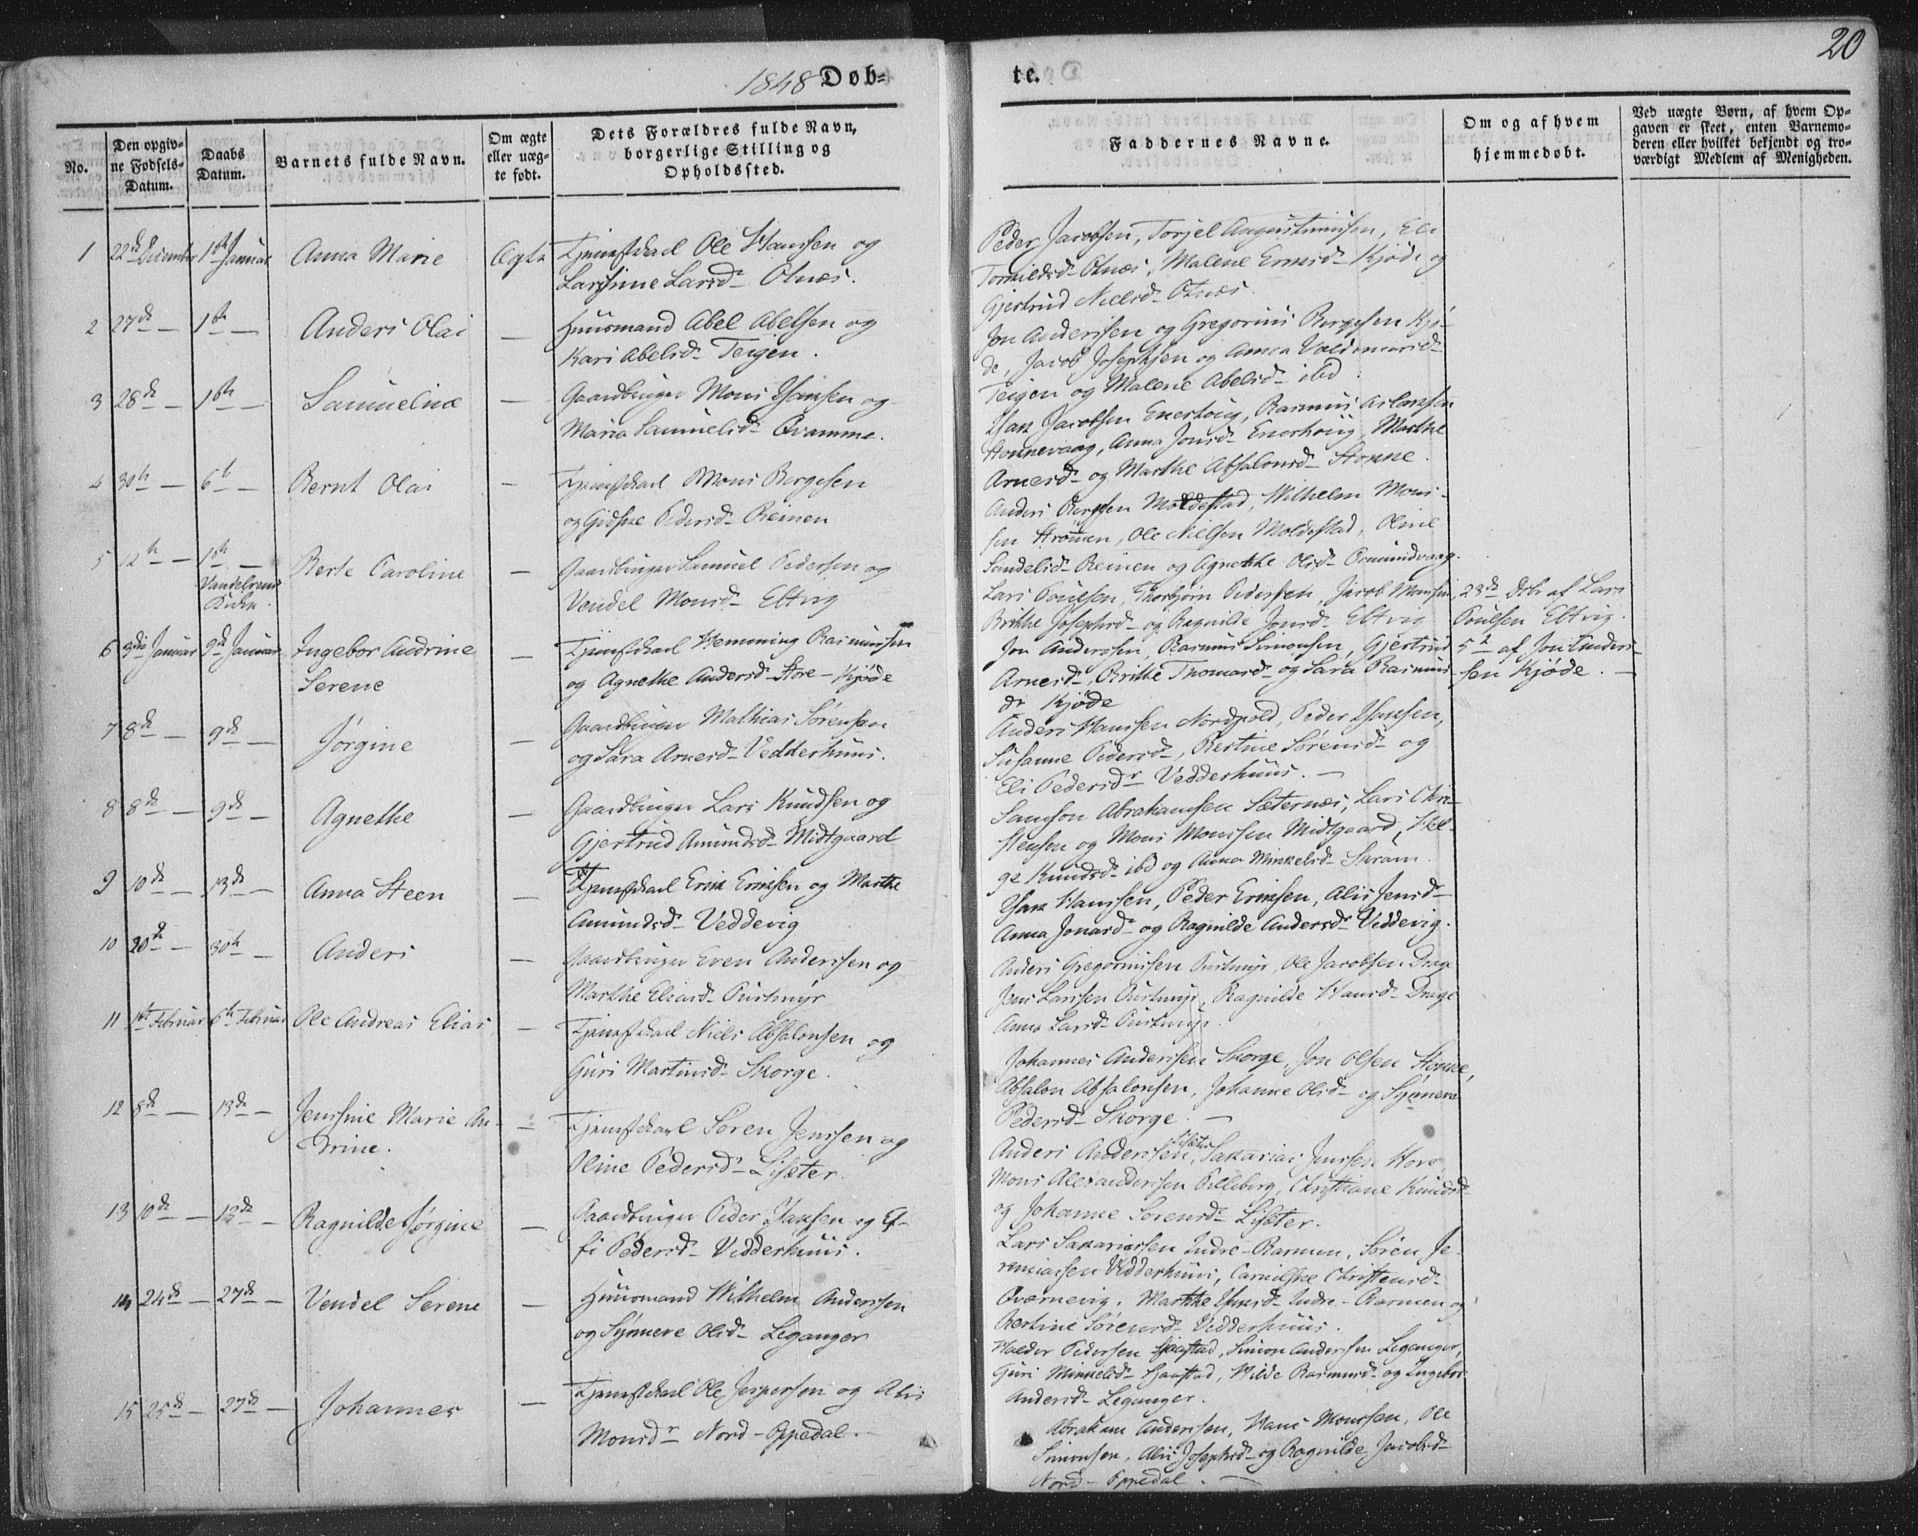 20
1848 Døb-
te.
No.
Den opgiv-
ne Fødsels-
Datum.
Daabs
Datum.
Barnets fulde Navn.
Om ægte
eller uæg-
te født.
Dets Forældres fulde Navn,
borgerlige Stilling og
Opholdssted.
Faddernes Navne.
Om og af hvem
hjemmedøbt.
Ved uægte Børn, af hvem Op-
gaven er skeet, enten Barnemo-
deren eller hvilket bekjendt og tro-
værdigt Medlem af Menigheden.
1 22de December 1ste Januar Anna Marie Ægte Tjenestekarl Ole Hanssen og
Larssine Larsd- Otnæs.
Peder Jacobsen, Torjel Augustinussen, Eli
Tormildsd- Otnæs, Malene Ernsd- Kjøde og
Gjertrud Nielsd- Otnæs.
2 27de — 1ste — Anders Olai — Huusmand Abel Abelsen og
Kari Abelsd- Teigen.
Jon Anderssen og Gregorius Børgesen Kjø-
de, Jacob Josephsen og Anna Valdemarsd-
Teigen og Malene Abelsd- ibd
3 28de — 1ste — Samueline — Gaardbruger Mons Isaksen og
Maria Samuelsd- Qvamme.
Isak Jacobsen Enerhoug, Rasmus Aslaksen
Honnevaag, Anna Jonsd- Enerhoug, Marthe
Arnesd- og Marthe Absalonsd- Honne.
4 30te — 6te Bernt Olai — Tjenestekarl Mons Børgesen
og Gidske Pedersd- Reinen
Anders Børgesen Moldestad, Wilhelm Mons-
sen Strømen, Ole Nielsen Moldestad, Oline
Sandelsd- Reinen og Agnethe Olsd- Osmundvaag.
5 12te — 1ste —
Vantelvens
Kirke.
Berte Caroline — Gaardbruger Samuel Pedersen og
Vendel Monsd- Eltvig
Lars Poulsen, Thorbjørn Pedersen, Jacob Monssen,
Brithe Josephsd- og Ragnilde Jonsd- Eltvig
23de Dcbr af Lars
Poulsen Eltvig.
6 3die Januar 9de Januar Ingebor Andrine
Serene
— Tjenestekarl Hemming Rasmussen
og Agnethe Andersd- Store-Kjøde
Jon Anderssen, Rasmus Simonsen, Gjertrud
Arnesd-, Brithe Thomasd- og Sara Rasmus-
dr Kjøde
5te af Jon Anders-
sen Kjøde. —
7 8de — 9de — Jørgine — Gaardbruger Mathias Sørensen
og Sara Arnesd- Vedderhuus.
Anders Hanssen Nordpold, Peder Isaksen,
Susanne Pedersd-, Bertine Sørensd- og
Eli Pedersdr Vedderhuus. —
8 8de — 9de — Agnethe — Gaardbruger Lars Knudsen og
Gjertrud Amundsd- Midtgaard
Samson Abrahamsen Sæternæs, Lars Chri-
stensen og Mons Monssen Midtgaard, Hel-
ge Knudsd- ibd og Anna Minkelsd- Skram.
9 10de — 13de — Anna Steen — Tjenestekarl Erik Eriksen og Marthe
Amundsd- Veddevig
Isak Hanssen, Peder Eriksen, Alis Jensd-
Anna Jonasd- og Ragnilde Andersdr Veddevig.
10 20de — 30te — Anders — Gaardbruger Even Anderssen og
Marthe Eliasd- Purtmyr
Anders Gregoriussen Purtmyr, Ole Jacobsen Drage
Jens Larssen Purtmyr, Ragnilde Hansd- Drage
Anna Larsd- Purtmyr.
11 1ste Februar 6te Februar Ole Andreas Elias — Tjenestekarl Niels Absalonsen og
Guri Martinsd- Skorge.
Johannes Anderssen Skorge, Jon Olsen Honne,
Absalon Absalonsen, Johanne Olsd- og Symere
Pedersd- Skorge. —
12 8de — 13de — Jenssine Marie An-
drine.
— Tjenestekarl Søren Jenssen og
Oline Pedersd- Lisæter.
Anders Anderssen Lisæter, Sakarias Jenssen Hove,
Mons Alexandersen Pilleberg, Christiane Knudsd-
og Johanne Sørensd- Lisæter.
13 10de — 13de — Ragnilde Jørgine — Gaardbruger Peder Isaksen og El-
si Pedersd- Vedderhuus.
Lars Sakariassen Indre-Barmen, Søren Je-
remiassen Vedderhuus, Carnilske Christensd-
Qvernevig, Marthe Isaksd- Indre-Barmen og
Bertine Sørensd- Vedderhuus.
14 24de — 27de — Vendel Serene — Huusmand Wilhelm Anderssen
og Symere Olsd- Leganger
Halder Pedersen Hjaastad, Simon Anderssen Leganger,
Guri Minkelsd- Hjaastad, Milde Rasmusd- og Ingebor
Andersd- Leganger.
15 25de — 27de — Johannes — Tjenestekarl Ole Jespersen og Alis
Monsdr Nord-Oppedal. —
Abraham Anderssen, Hans Monssen, Ole
Simonsen, Alis Josephsd- og Ragnilde Jacobsd-
Nord-Oppedal. —